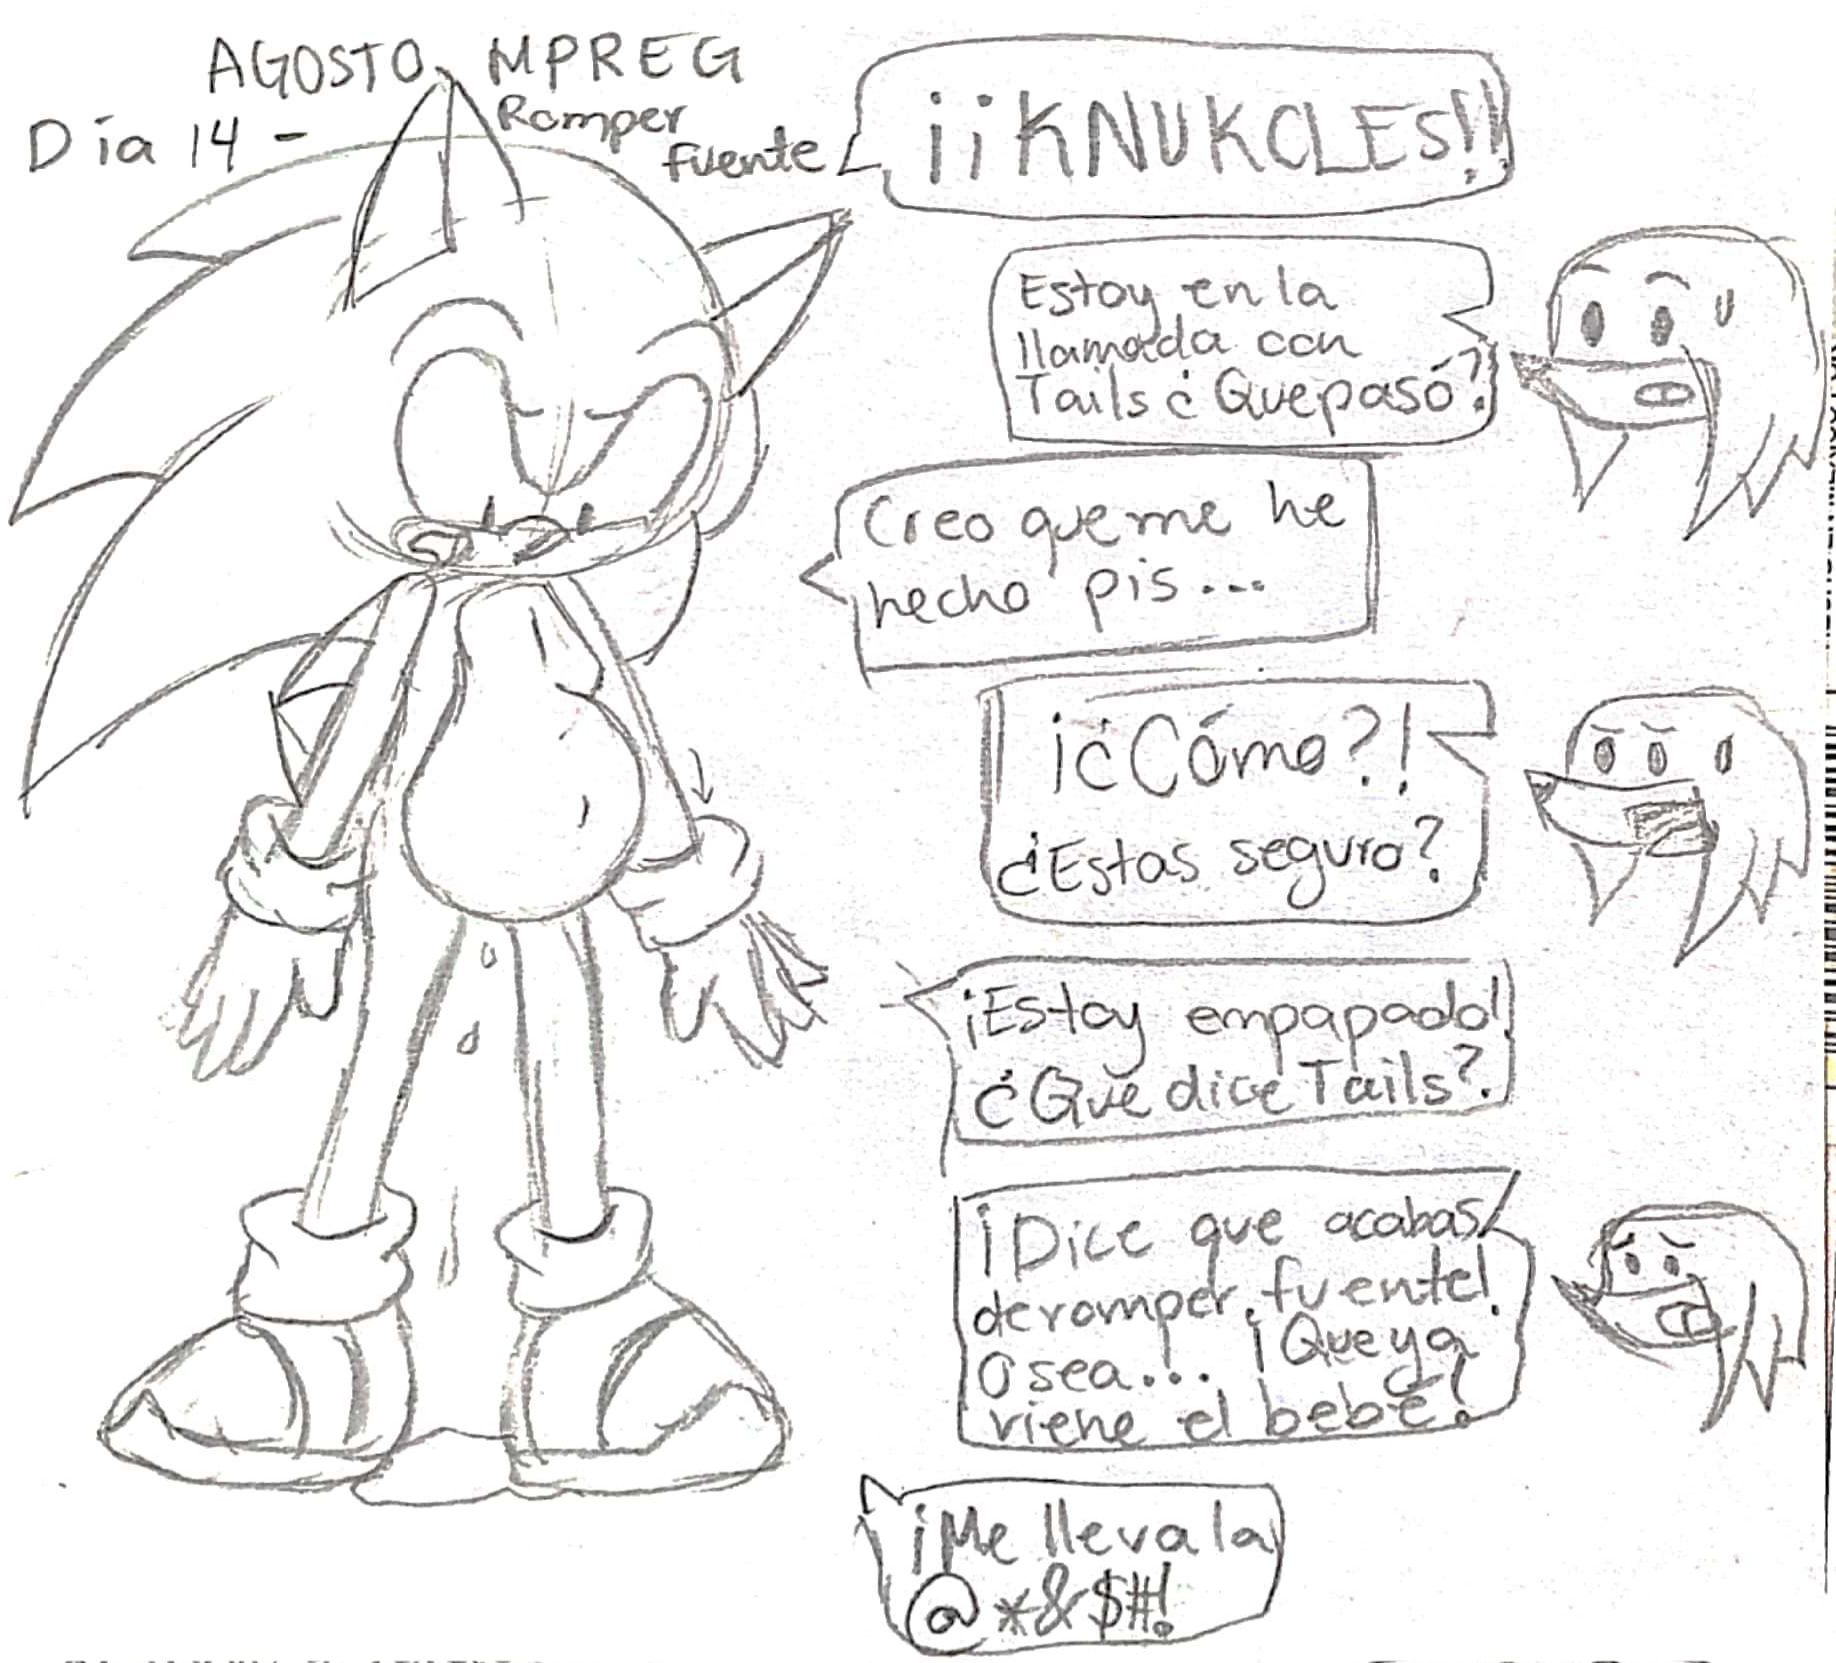 AGOSTO MPREG
Día 14 - Romper
fuente
¡¡KNUKCLES!!
Estoy en la
llamada con
Tails ¿Que pasó?
Creo que me he
hecho pis...
¡¿Cómo?!
¿Estas seguro?
¡Estoy empapado!
¿Que dice Tails?
¡Dice que acabas
de romper fuente!
O sea... ¡Que ya
viene el bebé!
¡Me lleva la
@*&$#!